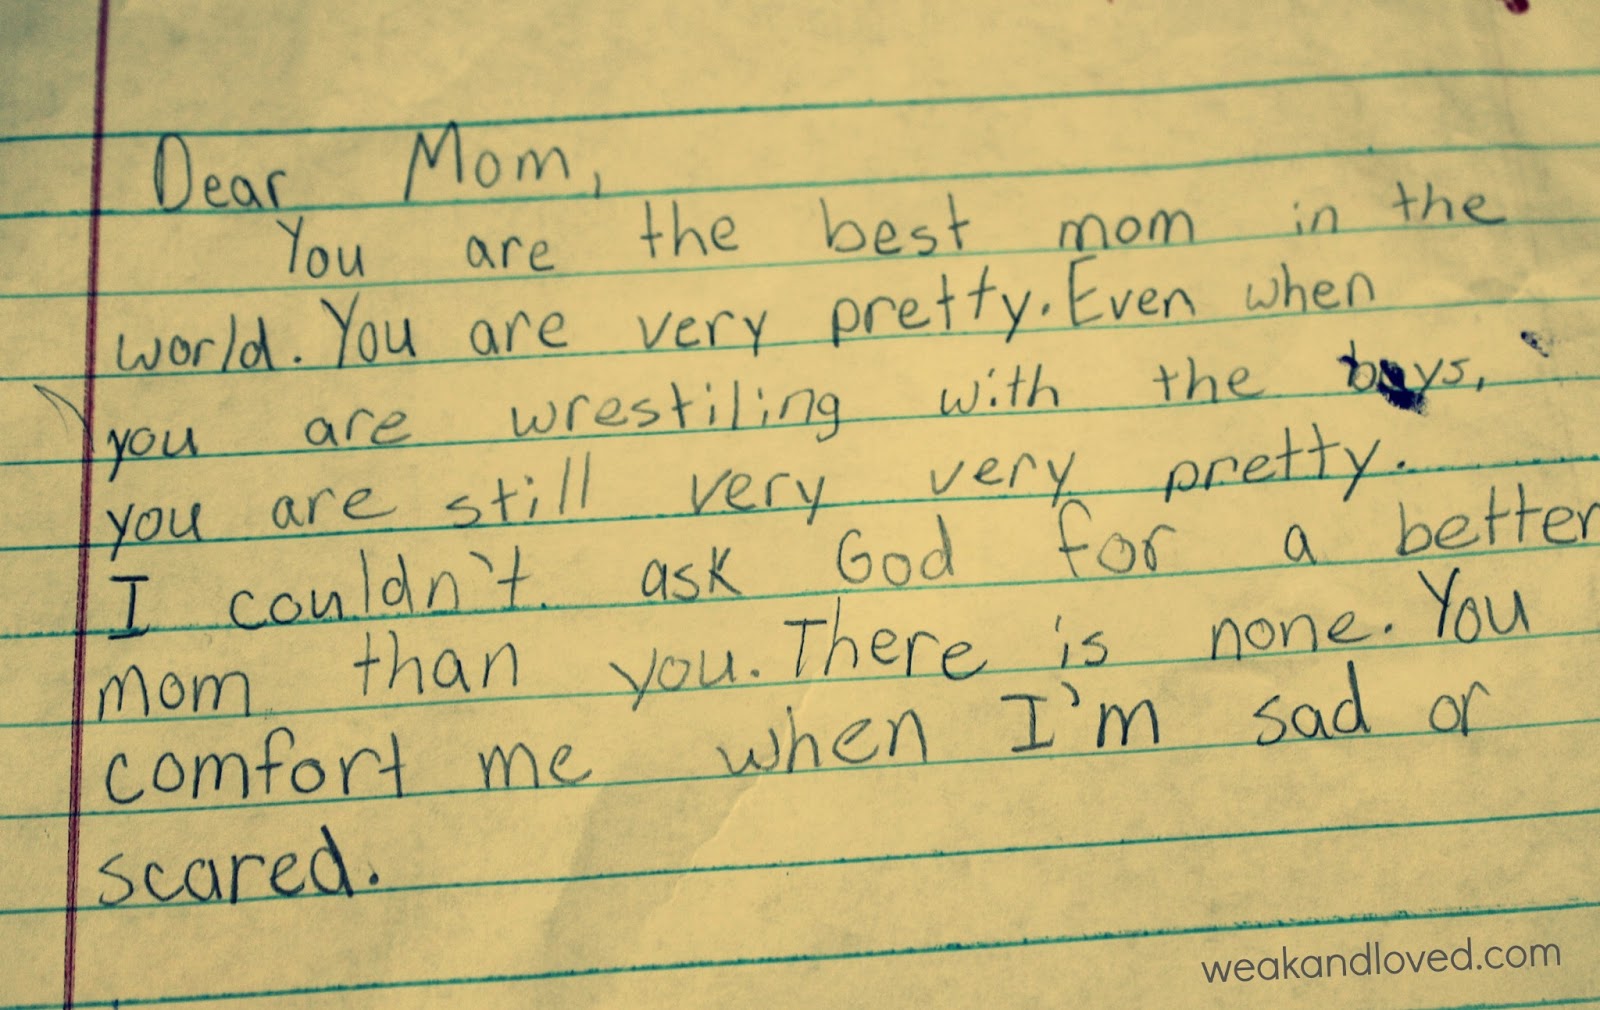 Dear Mom,
You are the best mom in the
world. You are very pretty. Even when
you are wrestiling with the boys,
you are still very very pretty.
I couldn't ask God for a better
mom than you. There is none. You
comfort me when I'm sad or
scared.
weakandloved.com